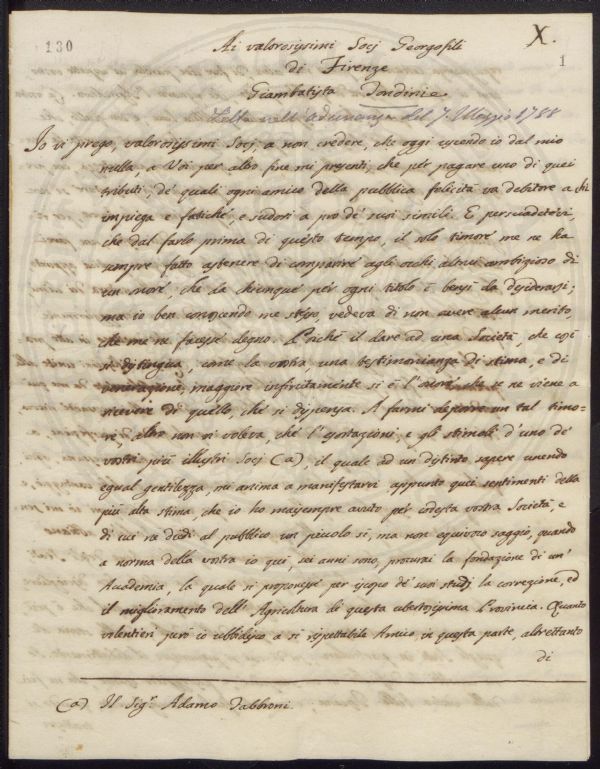 130
X.
1
Ai valorosissimi Socj Georgofili
di Firenze
Giambatista Dondini
Letta nell'adunanza del 7. Maggio 1788
Io vi prego, valorosissimi Socj, a non credere, che oggi uscendo io dal mio
nulla, a Voi per altro fine mi presenti, che per pagare uno di quei
tributi, de' quali ogni amico della pubblica felicità va debitore a chi
impiega e fatiche, e sudori a pro de' suoi simili. E persuadetevi,
che dal farlo prima di questo tempo, il solo timore me ne ha
sempre fatto astenere di comparire agli occhi altrui ambizioso di
un onore, che da chiunque per ogni titolo è bensì da desiderarsi;
ma io ben conoscendo me stesso, vedeva di non avere alcun merito,
che me ne facesse degno. Poichè il dare ad una Società, che così
si distingua, come la vostra una testimonianza di stima, e di
venerazione, maggiore infinitamente si è l'onore, che se ne viene a
ricevere di quello, che si dispensa. A farmi deporre un tal timo-
re, altro non vi voleva, che l'esortazioni, e gli stimoli d'uno de'
vostri più illustri Socj (a), il quale ad un distinto sapere unendo
egual gentilezza, mi anima a manifestarvi appunto quei sentimenti della
più alta stima, che io ho mai sempre avuto per codesta vostra Società, e
di cui ne diedi al pubblico un piccolo sì, ma non equivoco saggio, quando
a norma della vostra io quì, sei anni sono, procurai la fondazione di un'
Academia, la quale si proponesse per iscopo de' suoi studj la correzione, ed
il miglioramento dell'Agricoltura di questa ubertosissima Provincia. Quanto
volentieri però io ubbidisco a sì rispettabile Amico in questa parte, altrettanto
di
(a) Il Sigr. Adamo Fabbroni.